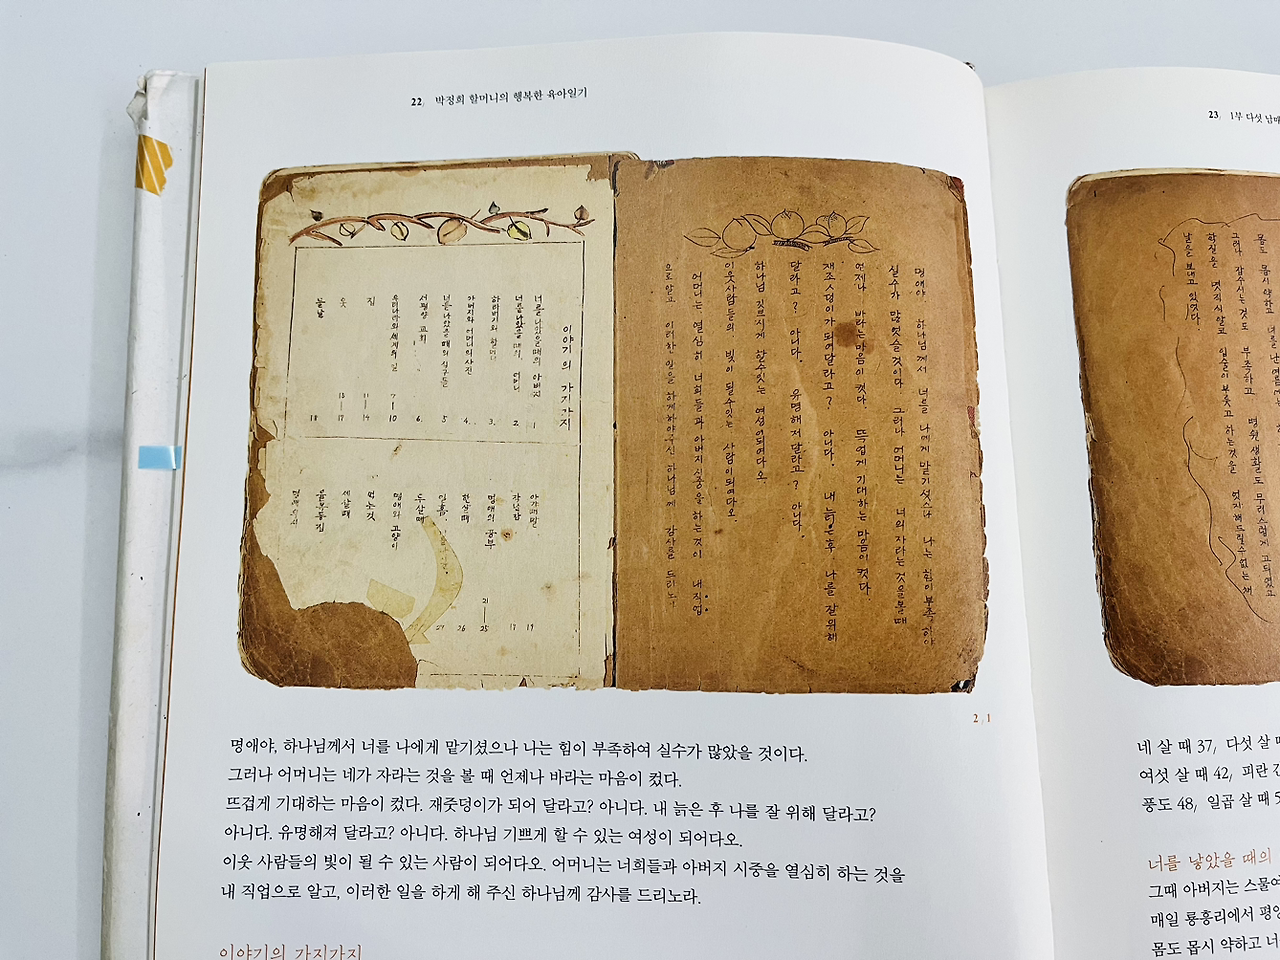 22/ 박정희 할머니의 행복한 육아일기
이야기의 가지가지
너를 나았을때의 아버지 1
너를 나았을때의 어머니 2
하라버지와 할머니 3.
아버지와 어머니의 사진 4.
너를 나았을때의 식구들 5
서평양 교회 6.
우리나라와 세계의 일 7—10
집 11—14
옷 15—17
돌날 18
19
작난감 17
명애의 공부 21—25
한살때 26
두살때
명애와 고양이
먹는것
세살때
명애야 하나님께서 너를 나에게 맡기셧스나 나는 힘이 부족하야
실수가 많엇슬것이다. 그러나 어머니는 너의 자라는 것을볼때
언제나 바라는마음이 컷다. 뜩겁게 기대하는 마음이 컷다.
재조스덩이가 되여달라고? 아니다. 내 늙은후 나를 잘위해
달라고? 아니다. 유명해저달라고? 아니다.
하나님 깃브시게 할수잇는 여성이되여다오.
이웃사람들의 빛이 될수잇는 사람이되여다오.
어머니는 열심히 너희들과 아버지시중을하는것이 내직업
으로알고 이러한일을 하게하야주신 하나님께 감사를 드리노라
2/1
명애야, 하나님께서 너를 나에게 맡기셨으나 나는 힘이 부족하여 실수가 많았을 것이다.
그러나 어머니는 네가 자라는 것을 볼 때 언제나 바라는 마음이 컸다.
뜨겁게 기대하는 마음이 컸다. 재줏덩이가 되어 달라고? 아니다. 내 늙은 후 나를 잘 위해 달라고?
아니다. 유명해져 달라고? 아니다. 하나님 기쁘게 할 수 있는 여성이 되어다오.
이웃 사람들의 빛이 될 수 있는 사람이 되어다오. 어머니는 너희들과 아버지 시중을 열심히 하는 것을
내 직업으로 알고, 이러한 일을 하게 해 주신 하나님께 감사를 드리노라.
이야기의 가지가지
23/ 1부 다섯 남매
몸도 몹시 약하고 너를 난
그러나 잠수시는것도 부족하고 병원 생활도 무리스럽게 고되엿고
학질을 몃직식알코 입술이 부릇고 하는것을 엇지해드릴수없는 채
날을 보내고 잇엇다.
네 살 때 37, 다섯 살
여섯 살 때 42, 피란
풍도 48, 일곱 살 때
너를 낳았을 때의
그때 아버지는
매일 룡흥리에서
몸도 몹시 약하고